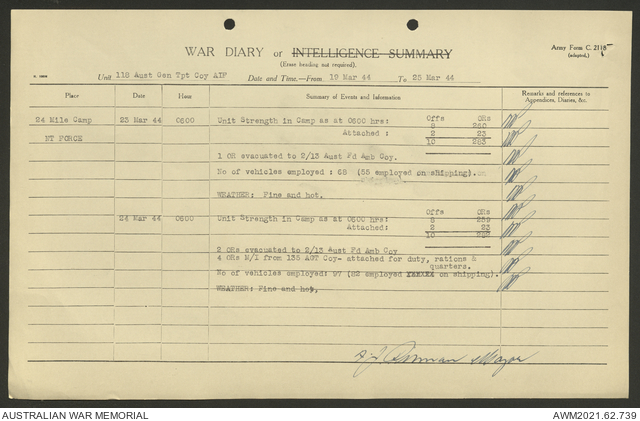 WAR DIARY or INTELLIGENCE SUMMARY
(Erase heading not required).
Army Form C. 2118
(adapted.)
Unit 118 Aust Gen Tpt Coy AIF Date and Time.—From 19 Mar 44 To 25 Mar 44
Place Date Hour Summary of Events and Information Remarks and references to Appendices, Diaries, &c.
24 Mile Camp 23 Mar 44 0600 Unit Strength in Camp as at 0600 hrs: Offs ORs
8 260
NT FORCE Attached : 2 23
10 283
1 OR evacuated to 2/13 Aust Fd Amb Coy.
No of vehicles employed : 68 (55 employed on shipping).
WEATHER: Fine and hot.
24 Mar 44 0600 Unit Strength in Camp as at 0600 hrs: Offs ORs
8 259
Attached: 2 23
10 282
2 ORs evacuated to 2/13 Aust Fd Amb Coy
4 ORs M/I from 135 AGT Coy- attached for duty, rations &
quarters.
No of vehicles employed: 97 (82 employed on shipping).
WEATHER: Fine and hot.
Major
AUSTRALIAN WAR MEMORIAL AWM2021.62.739